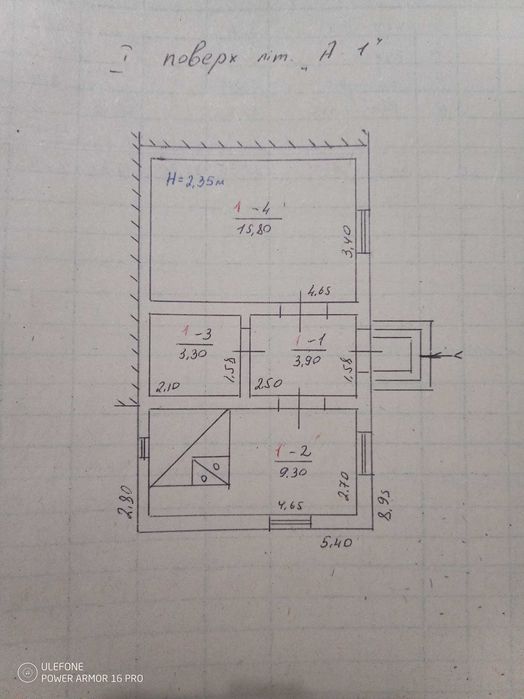 I поверх літ. „А 1"
H=2,35м
1-4
15,80
3,40
4,65
1-3
3,30
1,58
2,10
1-1
3,90
1,58
2,50
1-2
9,30
2,70
4,65
2,80
8,95
5,40
ULEFONE
POWER ARMOR 16 PRO